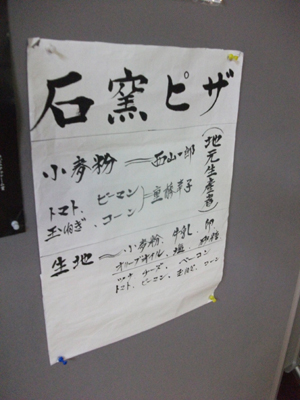 石窯ピザ
(地元生産者)
小麦粉 = 西山一郎
トマト、ピーマン
玉ねぎ、コーン
生地〜小麦粉、牛乳、卵
オリーブオイル、塩、砂糖
チーズ、ベーコン
トマト、ピーマン、玉ねぎ、コーン